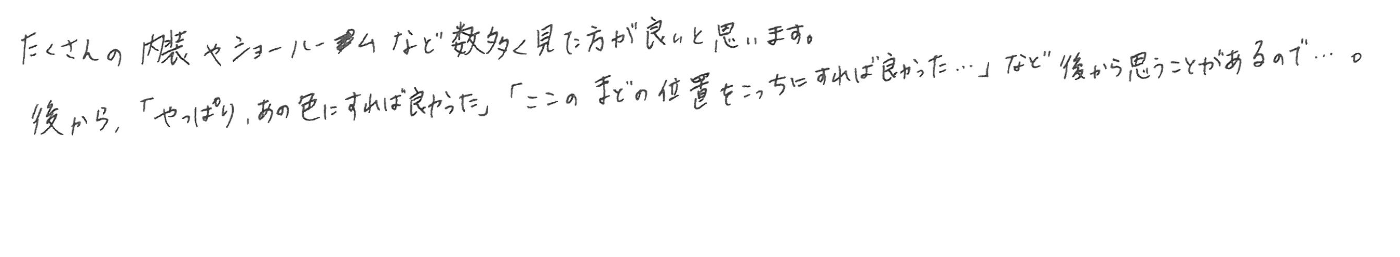 たくさんの内装やショールームなど数多く見た方が良いと思います。
後から、「やっぱり、あの色にすれば良かった」「ここのまどの位置をこっちにすれば良かった…」など後から思うことがあるので…。